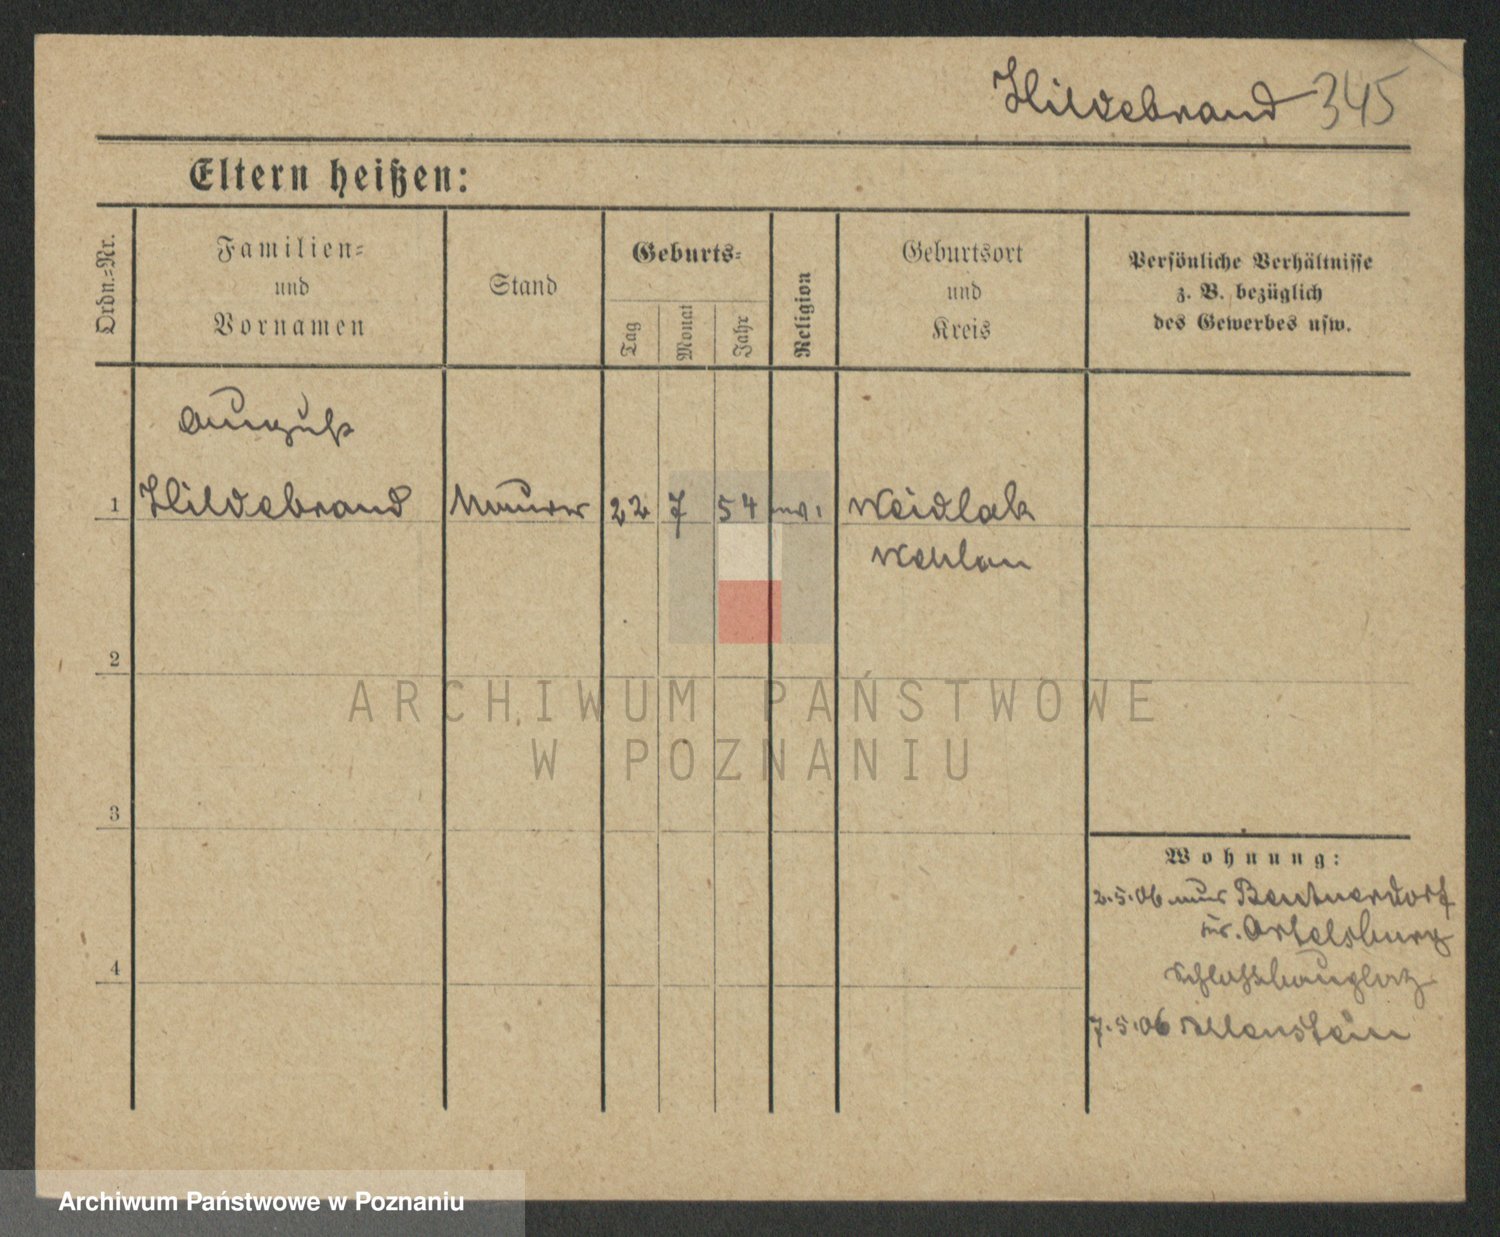 Hildebrand 345
Eltern heißen:
Ordn.=Nr.
Familien=
und
Vornamen
Stand
Geburts=
Tag
Monat
Jahr
Religion
Geburtsort
und
Kreis
Persönliche Verhältnisse
z. B. bezüglich
des Gewerbes usw.
August
1 Hildebrand Maurer 22 7 54 ev. Weidlak
Wehlau
2
3
4
ARCHIWUM PAŃSTWOWE
W POZNANIU
Wohnung:
2.5.06 Beutnerdorf
Kr. Ortelsburg
7.5.06 Allenstein
Archiwum Państwowe w Poznaniu